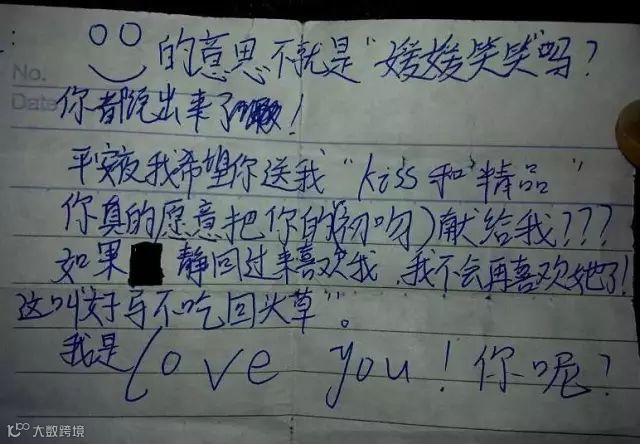 No.
Date
的意思不就是“媛媛笑笑”吗?
你都说出来了!
平安夜我希望你送我“kiss和精品”
你真的愿意把你的(初吻)献给我???
如果 静回过来喜欢我,我不会再喜欢她了!
这叫“好马不吃回头草”。
我是love you!你呢?
大数跨境